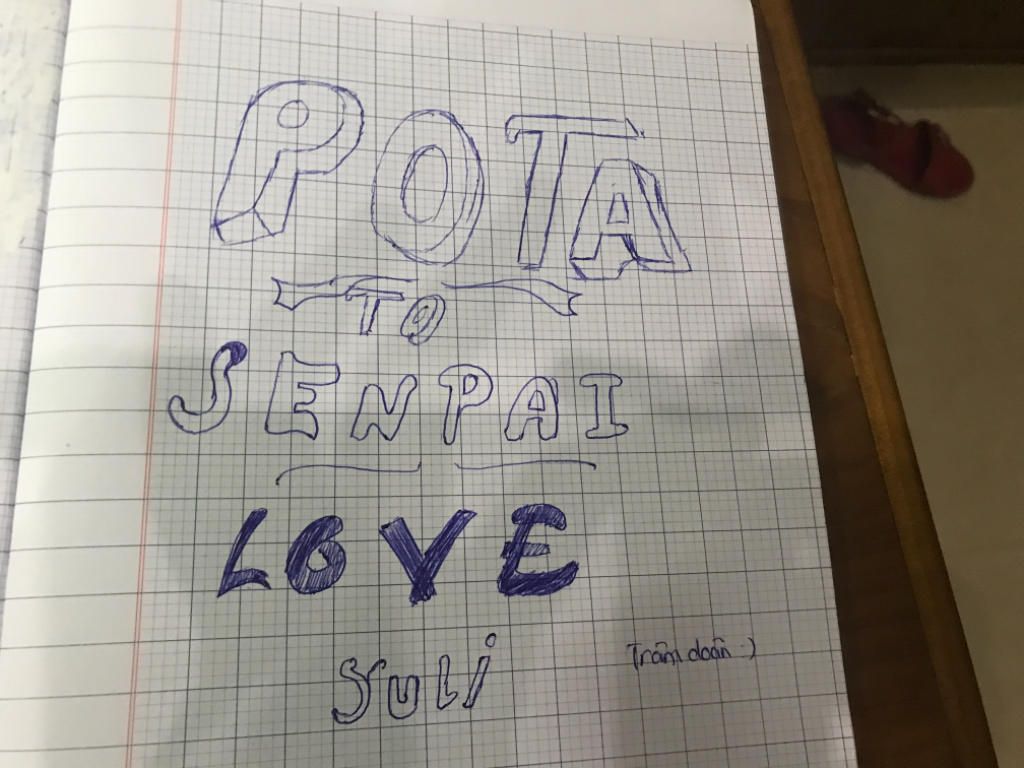 POTA
TO
SENPAI
LOVE
Suli
Trâm doãn :)